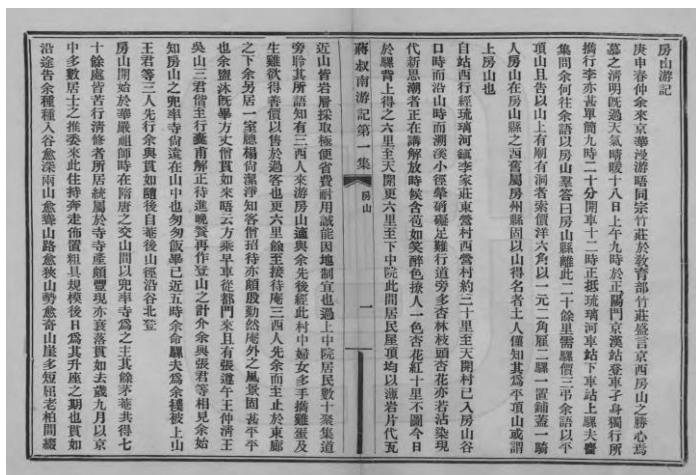 房山游記
庚申春仲余來京華漫游晤同宗竹莊於教育部竹莊盛言京西房山之勝心焉
慕之清明旣過天氣晴暖十八日上午九時於正陽門京漢站登車孑身獨行所
攜行李亦甚單簡九時二十分開車十二時正抵琉璃河車站下車站上驟夫醫
集問余何往余語以房山羣答曰房山縣離此二十餘里需驟價三弔余語以平
項山且告以山上有廟有洞者索價洋六角以一元二角雇二驟一置鋪蓋一騎
人房山在房山縣之西舊屬房州縣固以山得名者土人僅知其爲平項山或謂
上房山也
自站西行經琉璃河鎮李家莊東營村西營村約三十里至天開村已入房山谷
口時而沿山時而溯溪小徑犖确礙足難行道旁多杏林枝頭杏花亦若沾染現
代新思潮者正在講解放時候含苞如笑醉色撩人一色杏花紅十里不圖今日
於驟背上得之六里至天開更六里至下中院此間居民屋頂均以薄岩片代瓦
蔣叔南游記第一集
房山
一
近山皆岩層採取極便省費耐用誠能因地制宜也過上中院居民數十聚集道
旁聆其所語知有三西人來游房山適與余先後經此村中婦女多手攜雞蛋及
生雞欲得善價以售於過客也更六里餘至接待庵三西人先余而至止於東廊
之下余另居一室懸榻尙潔淨知客僧招待亦頗殷勤然庵外之風景固甚平平
也余盥沐旣畢方丈僧貫如來晤云方乘早車從都門來且有張遠午王仲淸王
吳山三君偕主行囊甫解正待進晚餐再作登山之計介余與張君等相見余始
知房山之兜率寺尙遠在山中也匆匆飯畢已近五時余命驟夫爲余襆被上山
王君等三人先行余與貫如隨後自菴後山徑沿谷北登
房山開始於華嚴祖師時在隋唐之交山間以兜率寺爲之主其餘茅菴共得七
十餘處皆苦行清修者所居統屬於寺寺產頗豐現亦衰落貫如去歲九月以京
中多數居士之推委來此住持奔走佈置粗具規模後日爲其升座之期也貫如
沿途告余種種入谷愈深兩山愈聳山路愈狹山勢愈奇山崖多短屈老柏間綴